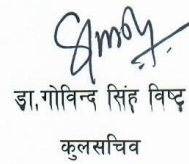 डा.गोविन्द सिंह विष्ट
कुलसचिव